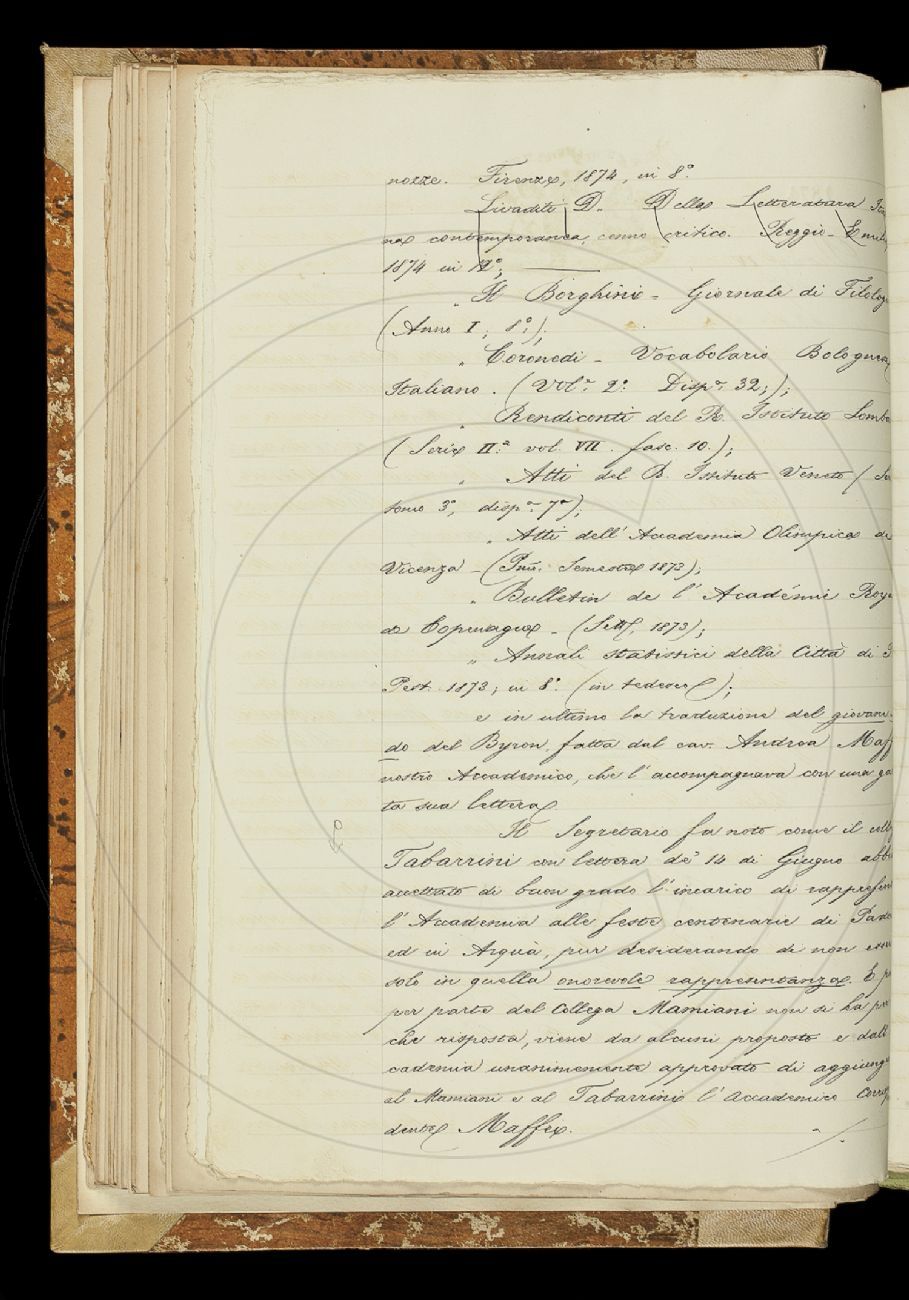 nozze. Firenze, 1874, in 8.°
Livaditi D. Della Letteratura Ita
na contemporanea, cenno critico. Reggio-Emilia,
1874 in 12°;
„ Il Borghini - Giornale di Filolog
(Anno I, 1°;).
„ Coronedi - Vocabolario Bologne
Italiano. (Vol.e 2.° Disp.e 32;);
„ Rendiconti del R. Istituto Lomba
(Serie II.a vol. VII. fasc. 10.);
„ Atti del R. Istituto Veneto (Se
tomo 3°, disp.e 7a);
„ Atti dell' Accademia Olimpica di
Vicenza - (Pmo. Semestre 1873);
„ Bulletin de l' Académie Roy
de Copenague - (Sett. 1873);
„ Annali statistici della Città di
Pest. 1873; in 8.° (in tedesco);
e in ultimo la traduzione del giovane
do del Byron, fatta dal cav. Andrea Maff
nostro Accademico, che l' accompagnava con una ga
ta sua lettera.
Il Segretario fa noto come il coll
Tabarrini con lettera de' 14 di Giugno abbi
accettato di buon grado l' incarico di rappresen
l' Accademia alle feste centenarie di Pado
ed in Arquà, pur desiderando di non esse
solo in quella onorevole rappresentanza. E p
per parte del Collega Mamiani non si ha per
che risposta, viene da alcuni proposto e dall'
cademia unanimemente approvato di aggiunge
al Mamiani e al Tabarrini l' Accademico Corrisp
dente Maffei.